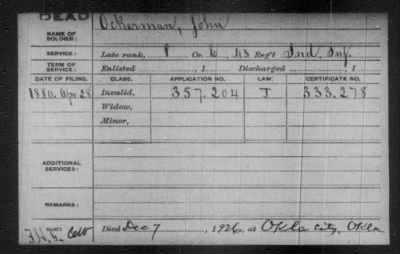 DEAD
NAME OF SOLDIER: Ockerman, John
SERVICE: Late rank, P Co. G, 43 Reg't Ind. Inf.
TERM OF SERVICE: Enlisted , 1 . Discharged , 1 .
DATE OF FILING. CLASS. APPLICATION NO. LAW. CERTIFICATE NO.
1880. Apr. 28 Invalid, 357.204 J 333.278
Widow,
Minor,
ADDITIONAL SERVICES:
REMARKS:
Died Dec 7 , 1926, at Okla City, Okla